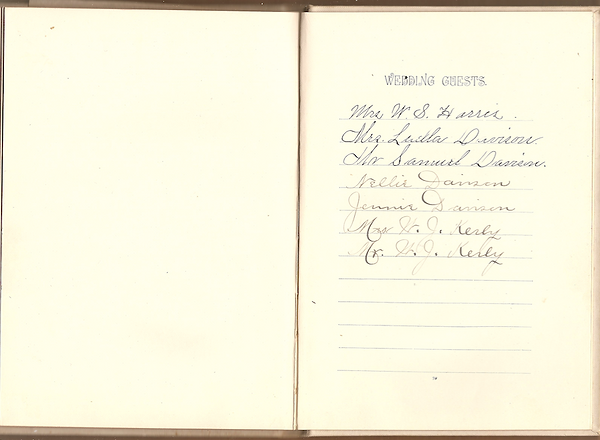 WEDDING GUESTS.
Mrs W. S. Harris.
Mrs. Luella Davison.
Mr Samuel Davison.
Nellie Davison
Jennie Davison
Mrs W. J. Kerby
Mr. W. J. Kerby